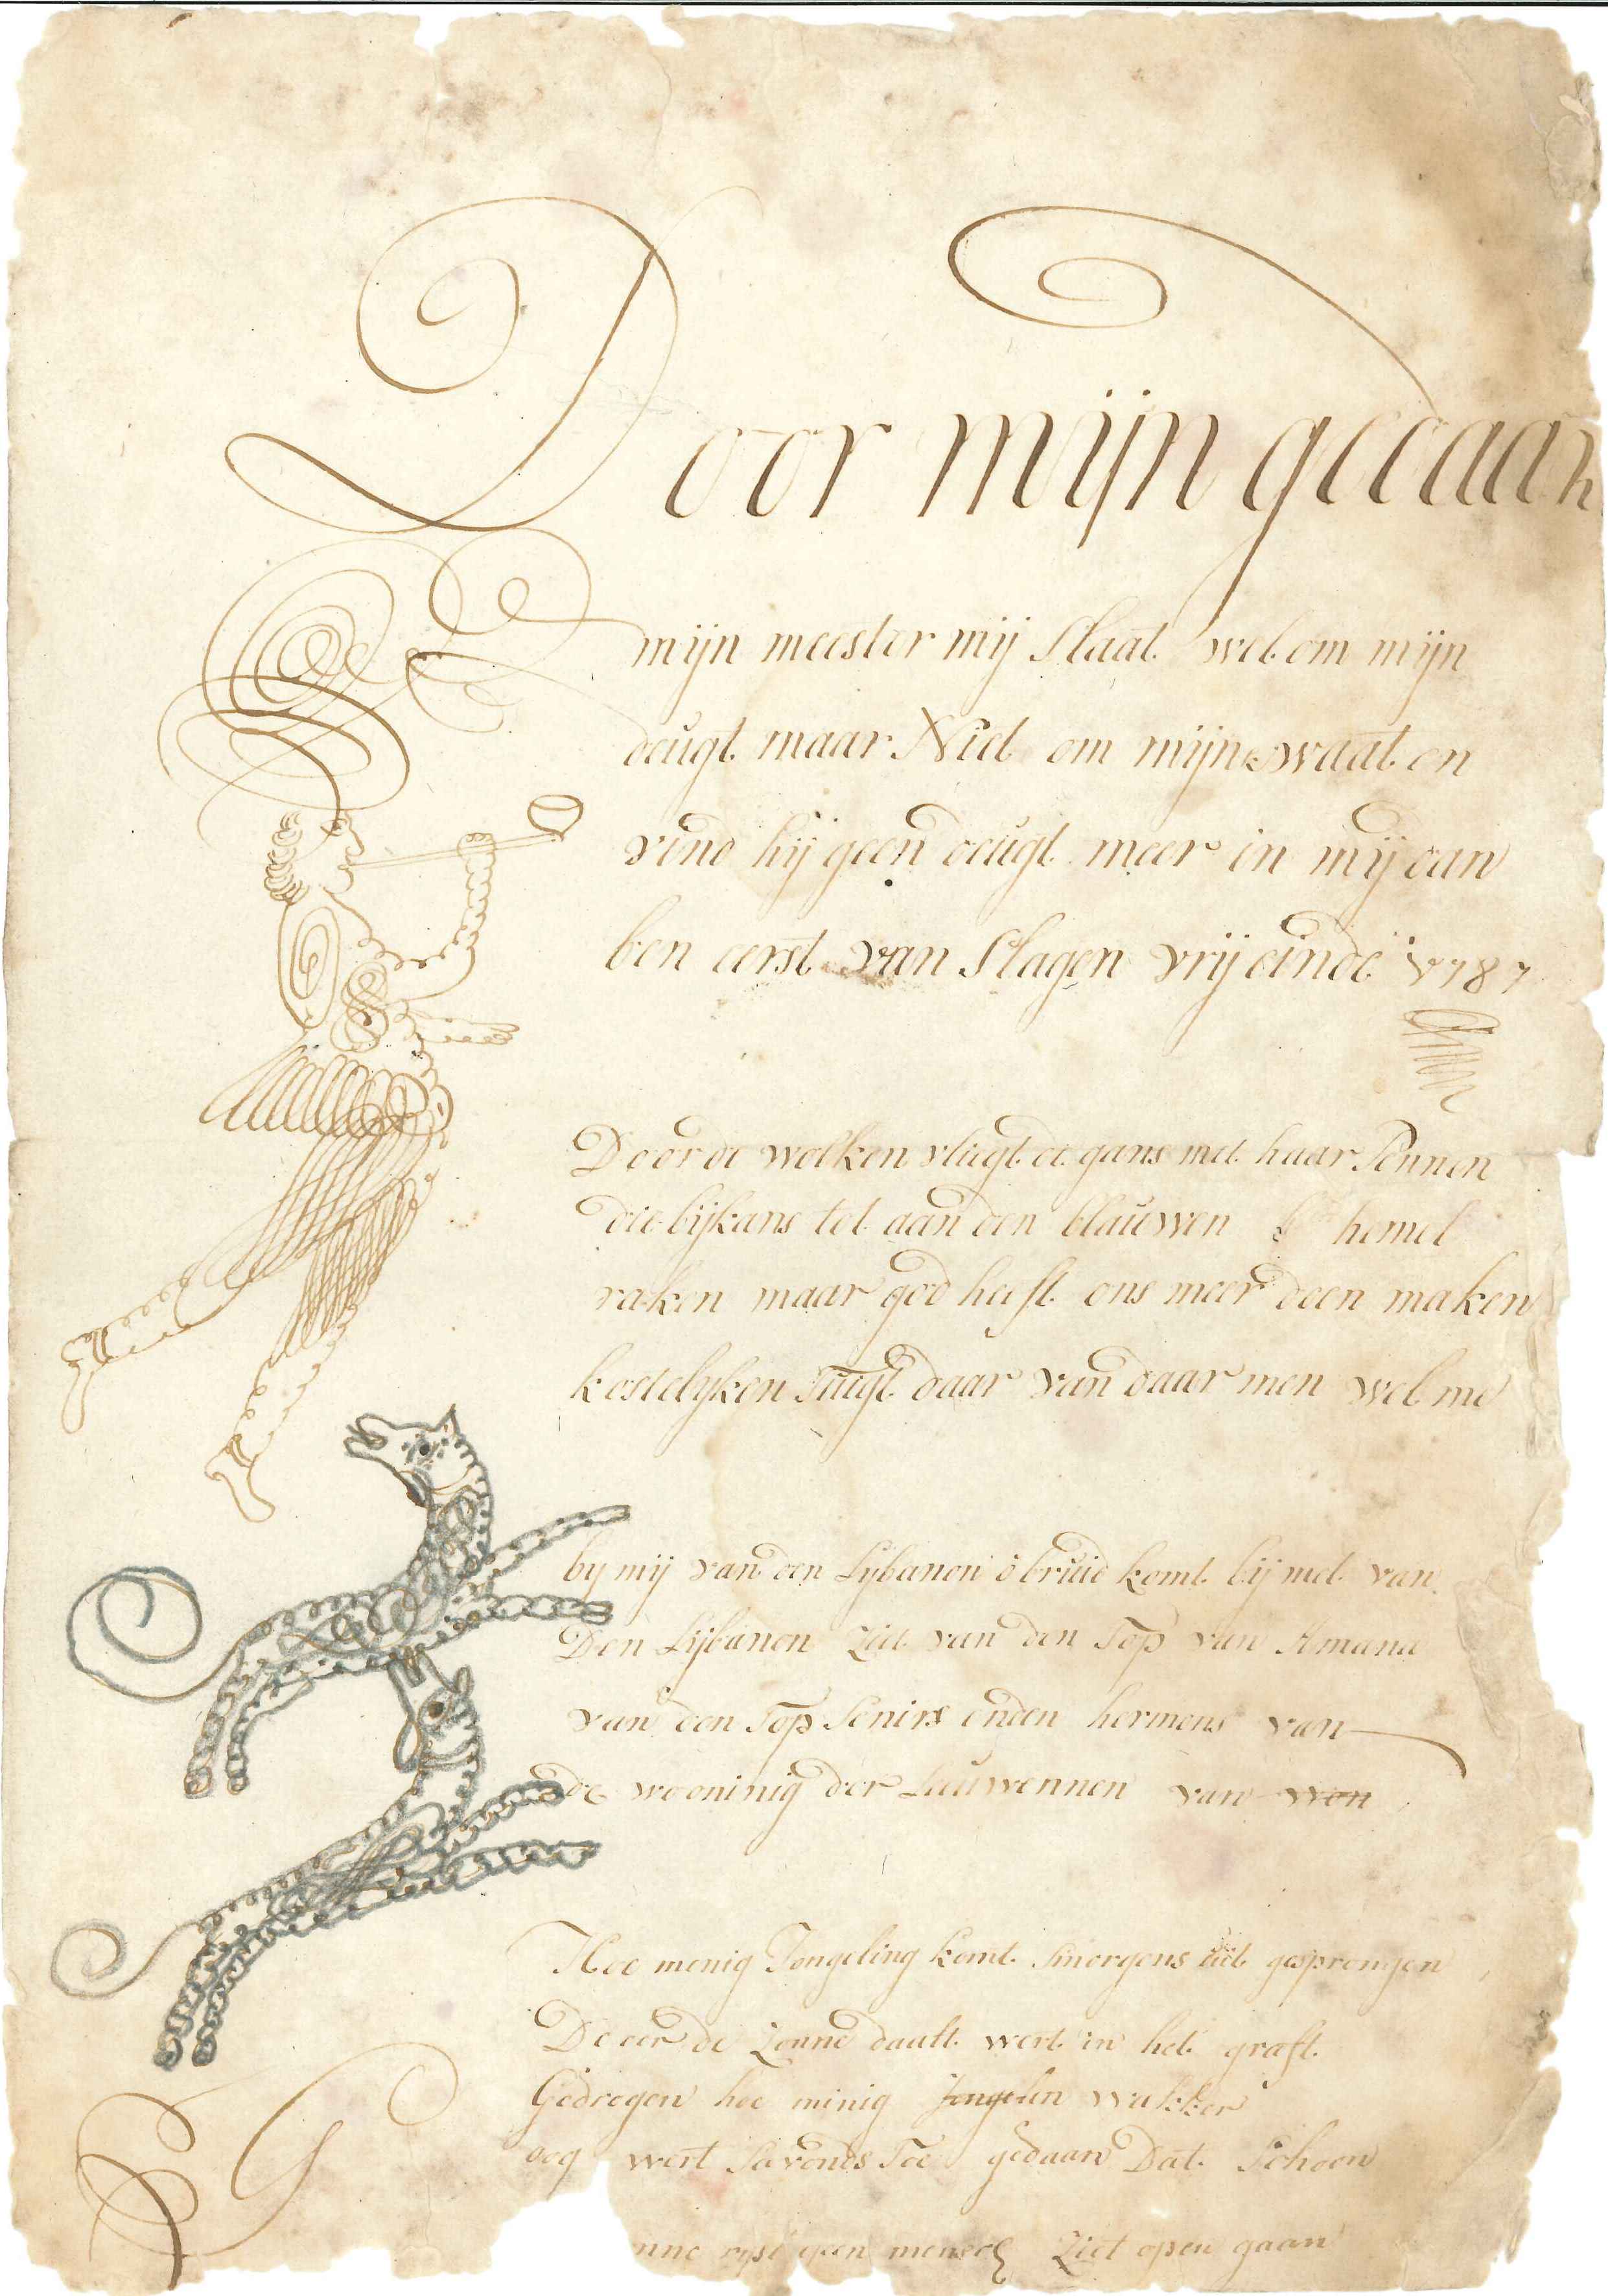 Door mijn gedaan
mijn meester mij Slaat wel om mijn
deugt maar Niet om mijn qwaat en
vind hij geen deugt meer in mij dan
ben eerst van Slagen vrij einde 1787
Door de wolken vliigt de gans met haar Pennen
die bijkans tot aan den blauwen hemel
raken maar god heeft ons meer doen maken
kostelyken Tuigt daar van daar men wel me
by mij van den Lybanon ô bruid komt bij met van
Den Lijbanon Ziet van den Top van Amana
van den Top Senirs enden hermens van
de wooninig der Leuwennen van won
Hoe menig Jongeling komt Smorgens uit gesprongen
De eer de Zonne daalt wert in het graft
Gedregen hoe minig Jongelin wakker
oog wert Savonds Toe gedaan Dat Schoon
nne geen mensch Ziet open gaan